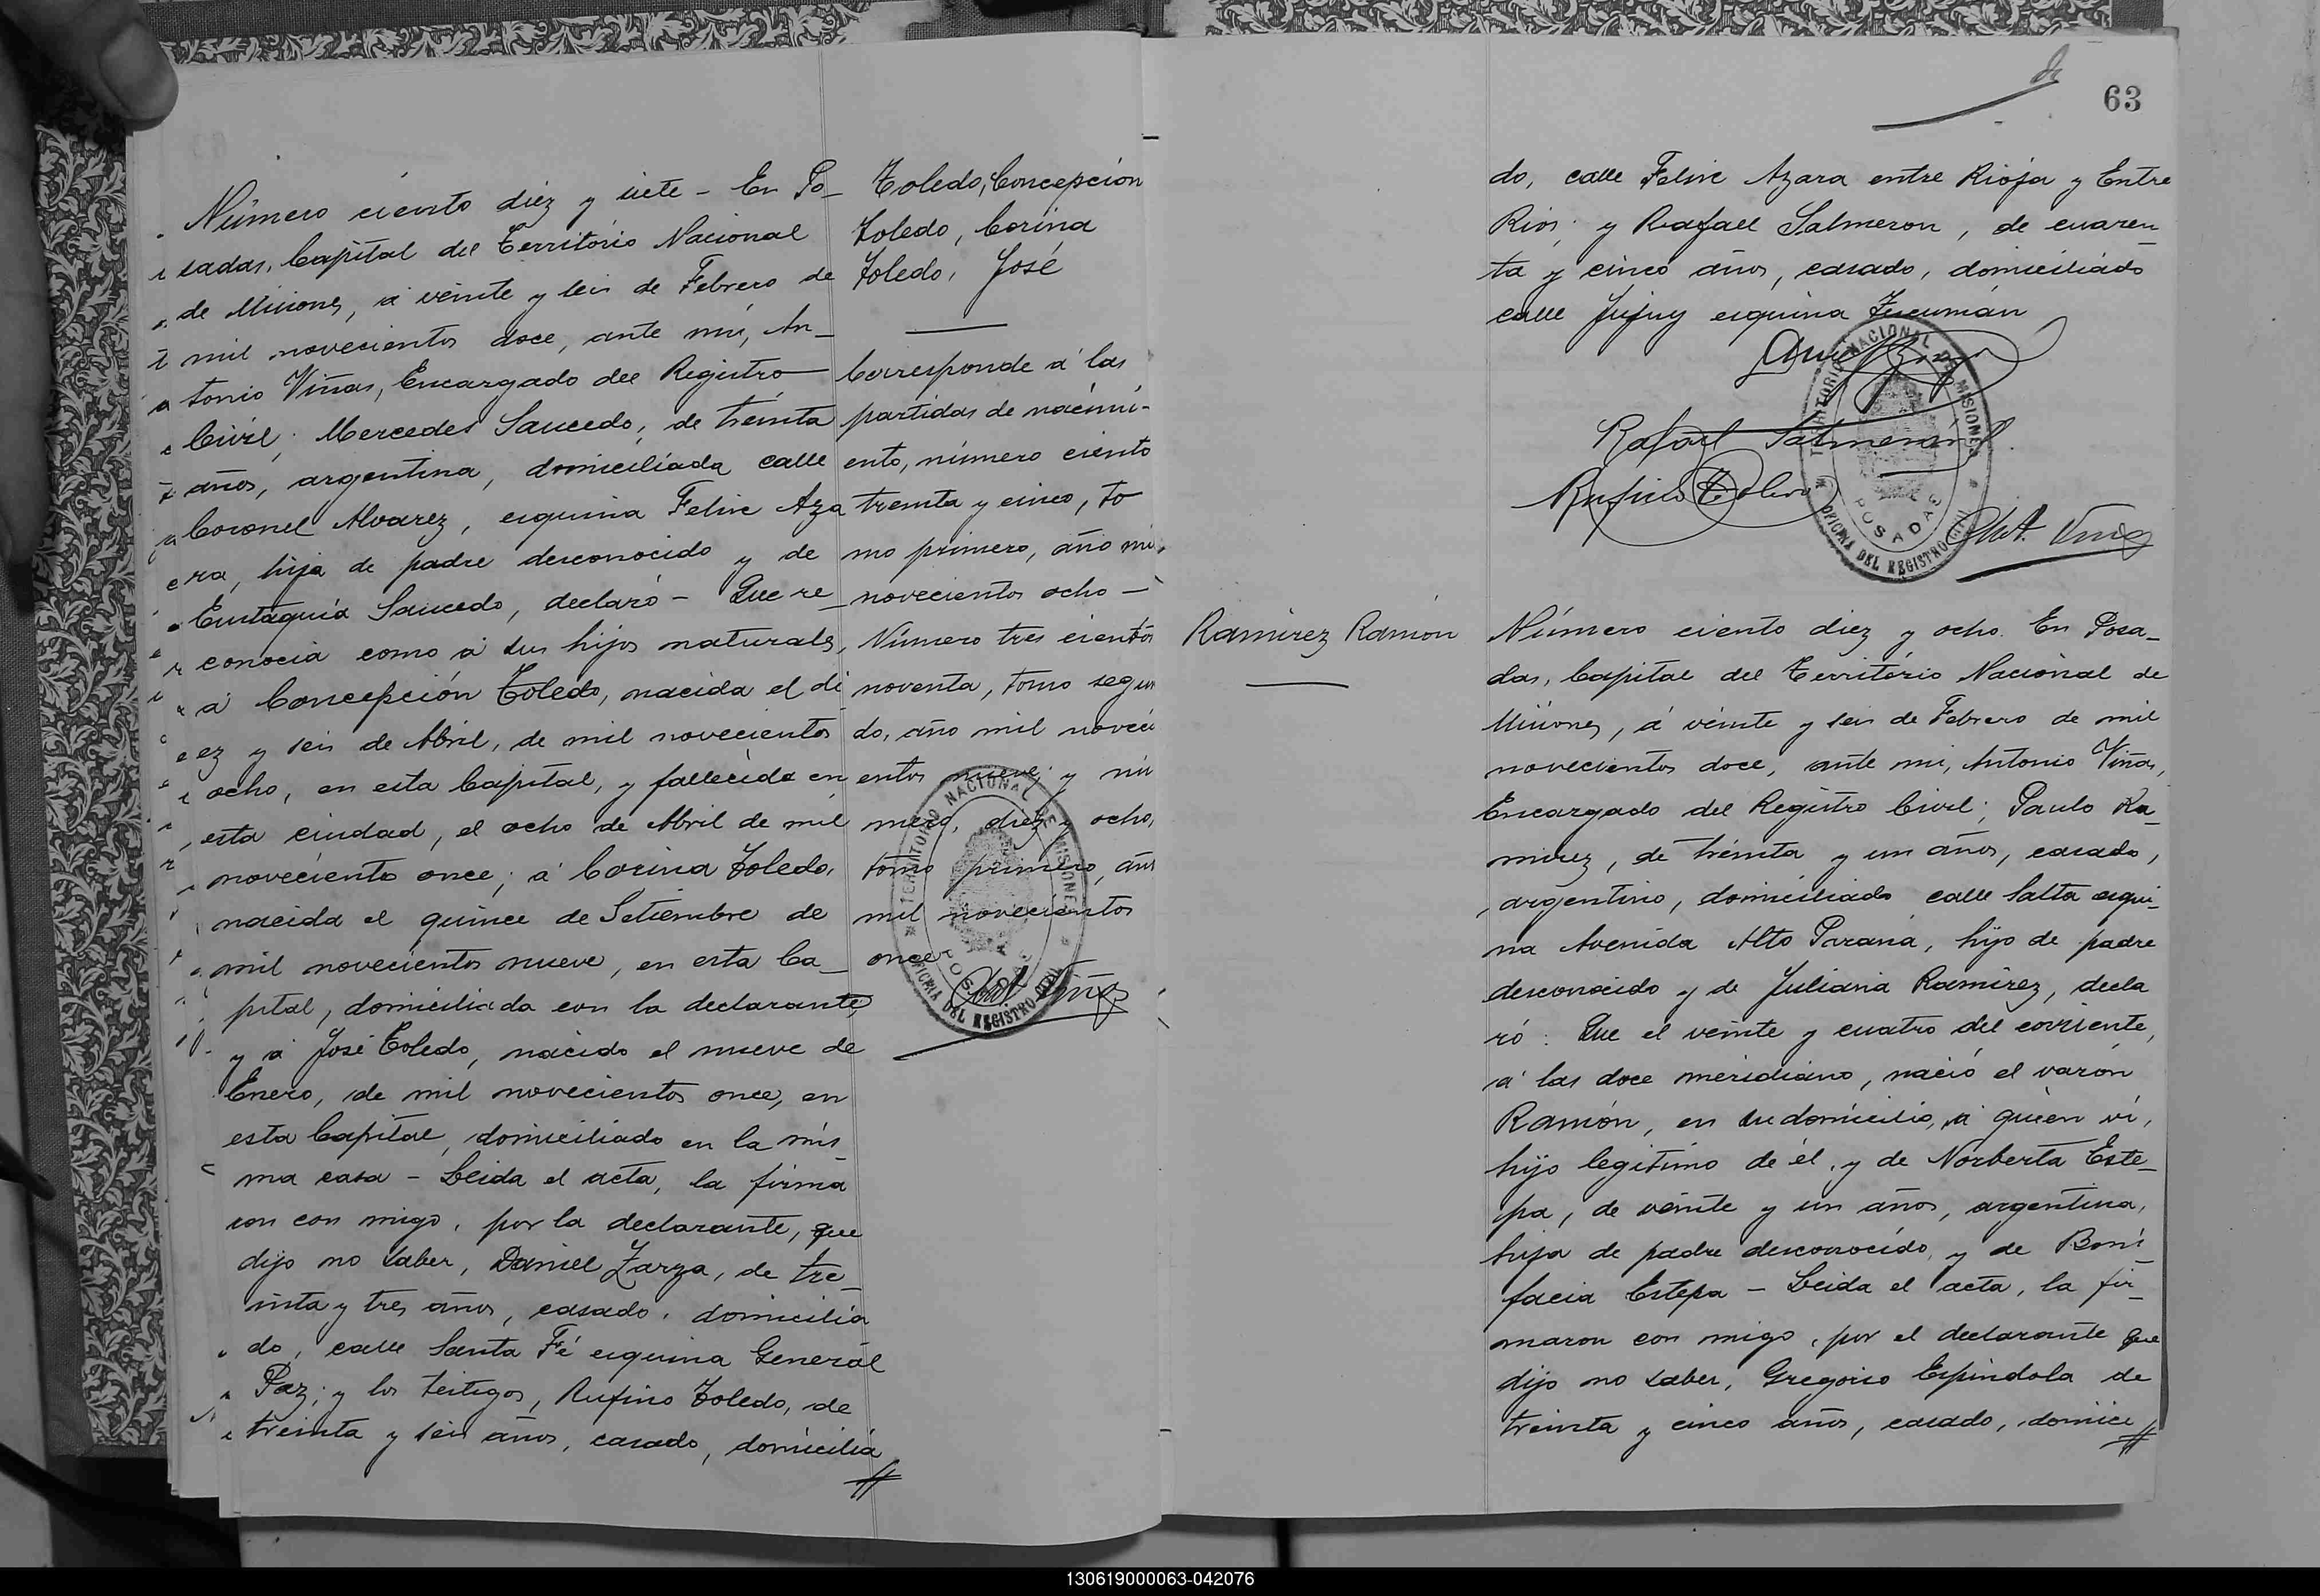 Número ciento diez y siete - En Po_
sadas, Capital del Território Nacional
de Misiones, á veinte y seis de Febrero de
mil novecientos doce, ante mi, An_
tonio Viñas, Encargado del Registro
Civil; Mercedes Saucedo, de treinta
años, argentina, domiciliada calle
Coronel Alvarez, esquina Felix Aza
ra, hija de padre desconocido y de
Eustaquia Saucedo, declaró - Que re_
conocia como á sus hijos naturales,
á Concepción Toledo, nacida el di
ez y seis de Abril, de mil novecientos
ocho, en esta Capital, y fallecida en
esta ciudad, el ocho de Abril de mil
novecientos once; á Corina Toledo,
nacida el quince de Setiembre de
mil novecientos nueve, en esta Ca_
pital, domiciliada con la declarante
y á José Toledo, nacido el nueve de
Enero, de mil novecientos once, en
esta Capital, domiciliado en la mis_
ma casa - Leida el acta, la firma
ron con migo, por la declarante, que
dijo no saber, Daniel Zarza, de tre_
inta y tres años, casado, domicilia
do, calle Santa Fé esquina General
Paz; y los testigos, Rufino Toledo, de
treinta y seis años, casado, domicilia
Toledo, Concepción
Toledo, Corina
Toledo, José
Corresponde á las
partidas de nacimi-
ento, número ciento
treinta y cinco, to
mo primero, año mil
novecientos ocho -
Número tres cientos
noventa, tomo segun
do, año mil noveci
entos nueve; y nú
mero, diez y ocho,
tomo primero, año
mil novecientos
once
TERRITORIO NACIONAL DE MISIONES
POSADAS
OFICINA DEL REGISTRO CIVIL
Ant. Viñas
63
do, calle Felix Azara entre Rioja y Entre
Rios; y Rafael Salmeron, de cuaren_
ta y cinco años, casado, domiciliado
calle Jujuy esquina Tucumán
Rafael Salmerón
Rufino Toledo
TERRITORIO NACIONAL DE MISIONES
POSADAS
OFICINA DEL REGISTRO CIVIL
Ant. Viñas
Ramirez Ramón
Número ciento diez y ocho. En Posa_
das, Capital del Território Nacional de
Misiones, á veinte y seis de Febrero de mil
novecientos doce, ante mi, Antonio Viñas,
Encargado del Registro Civil; Paulo Ra_
mirez, de treinta y un años, casado,
argentino, domiciliado calle Salta esqui_
na Avenida Alto Paraná, hijo de padre
desconocido y de Juliana Ramirez, decla
ró: Que el veinte y cuatro del corriente,
á las doce meridiano, nació el varón
Ramón, en su domicilio, á quien vi,
hijo legitimo de él, y de Norberta Este_
pa, de veinte y un años, argentina,
hija de padre desconocido, y de Boni
facia Estepa - Leida el acta, la fir_
maron con migo, por el declarante que
dijo no saber, Gregorio Espindola de
treinta y cinco años, casado, domici
130619000063-042076